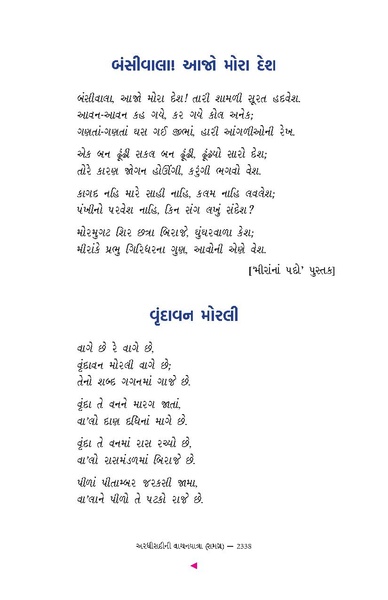 બંસીવાલા! આજો મોરા દેશ
બંસીવાલા, આજો મોરા દેશ! તારી શામળી સૂરત હદવેશ.
આવન-આવન કહ ગયે, કર ગયે કોલ અનેક;
ગણતાં-ગણતાં ઘસ ગઈ જીભાં, હારી આંગળીઓની રેખ.
એક બન ઢૂંઢી સકલ બન ઢૂંઢી, ઢૂંઢ્યો સારો દેશ;
તોરે કારણ જોગન હોઊંગી, કરુંગી ભગવો વેશ.
કાગદ નહિ મારે સાહી નાહિ, કલમ નાહિ લવલેશ;
પંખીનો પરવેશ નાહિ, કિન સંગ લખું સંદેશ?
મોરમુગટ શિર છત્રા બિરાજે, ઘુંઘરવાળા કેશ;
મીરાંકે પ્રભુ ગિરિધરના ગુણ, આવોની એણે વેશ.
['મીરાંનાં પદો' પુસ્તક]
વૃંદાવન મોરલી
વાગે છે રે વાગે છે,
વૃંદાવન મોરલી વાગે છે;
તેનો શબ્દ ગગનમાં ગાજે છે.
વૃંદા તે વનને મારગ જાતાં,
વા'લો દાણ દધિનાં માગે છે.
વૃંદા તે વનમાં રાસ રચ્યો છે,
વા'લો રાસમંડળમાં બિરાજે છે.
પીળાં પીતામ્બર જરકસી જામા,
વા'લાને પીળો તે પટકો રાજે છે.
અરધીસદીની વાચનયાત્રા (સમગ્ર) — 2335